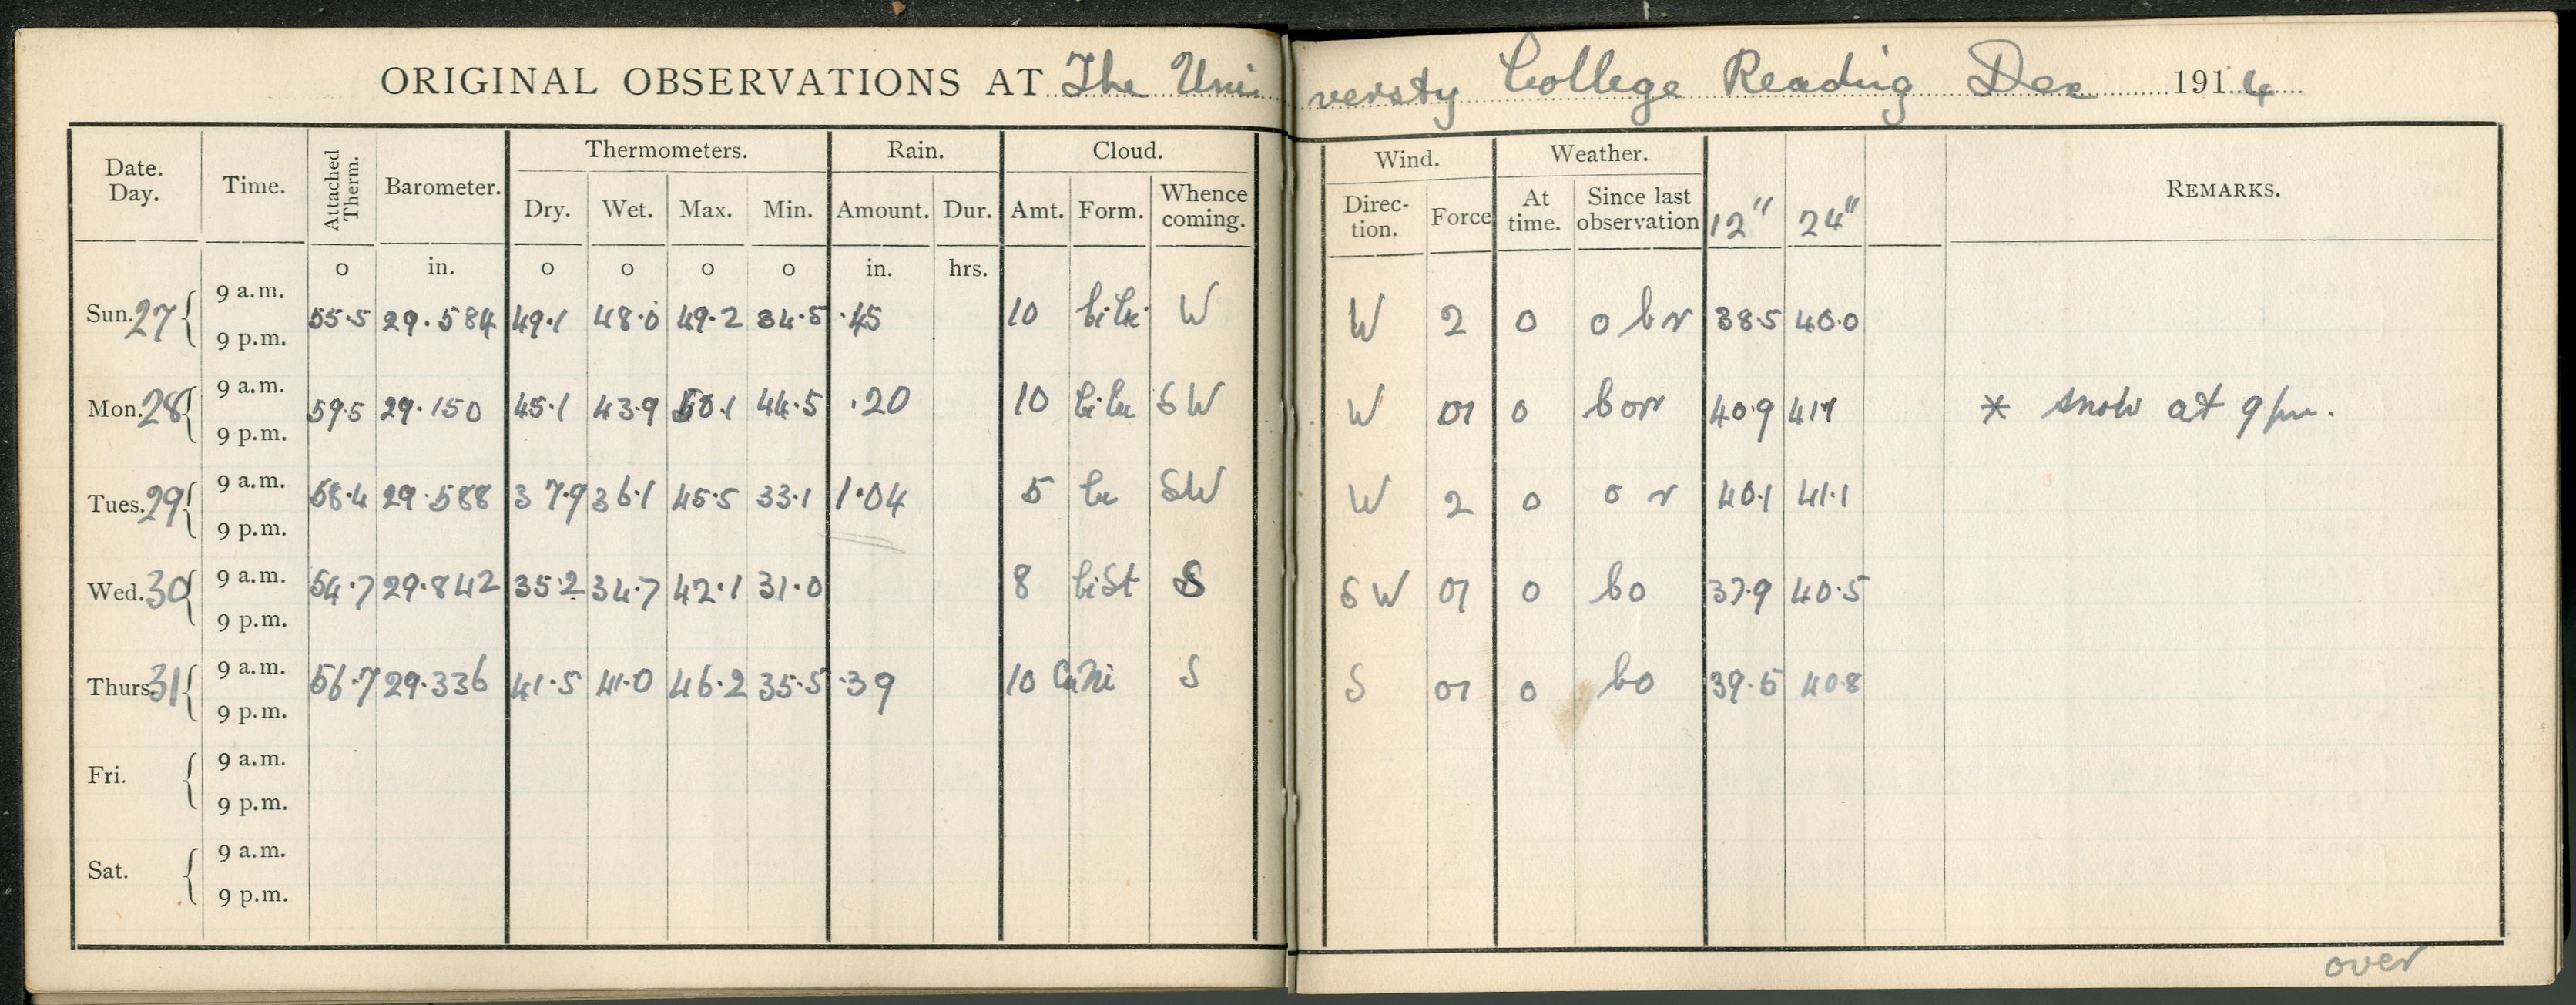 ORIGINAL OBSERVATIONS AT The University College Reading Dec 1914
Date. Day. Time. Attached Therm. Barometer. Thermometers. Rain. Cloud. Wind. Weather. 12" 24" REMARKS.
Dry. Wet. Max. Min. Amount. Dur. Amt. Form. Whence coming. Direc- tion. Force At time. Since last observation
o in. o o o o in. hrs.
Sun. 27 9 a.m. 55.5 29.584 49.1 48.0 49.2 34.5 .45 10 W W 2 o o b r 38.5 40.0
9 p.m.
Mon. 28 9 a.m. 59.5 29.150 45.1 43.9 50.1 44.5 .20 10 SW W 01 o b o rr 40.9 41.1 * snow at 9 pm.
9 p.m.
Tues. 29 9 a.m. 58.4 29.588 37.9 36.1 45.5 33.1 1.04 5 SW W 2 o o r 40.1 41.1
9 p.m.
Wed. 30 9 a.m. 54.7 29.842 35.2 34.7 42.1 31.0 8 CiSt S SW 01 o bo 37.9 40.5
9 p.m.
Thurs. 31 9 a.m. 56.7 29.336 41.5 41.0 46.2 35.5 .39 10 CuNi S S 01 o bo 39.5 40.8
9 p.m.
Fri. 9 a.m.
9 p.m.
Sat. 9 a.m.
9 p.m.
over